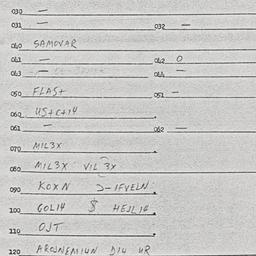 030 —
031 — 032 —
040 SAMOVAR
041 — 042 O
043 — 044 —
050 FLAS+ 051 -
060 US+C+14
061 — 062 —
070 MIL3X
080 MIL3X VIL 3X
090 KOXN
100 GOL14 $ HEJL14
110 OJT
120 DIU UR